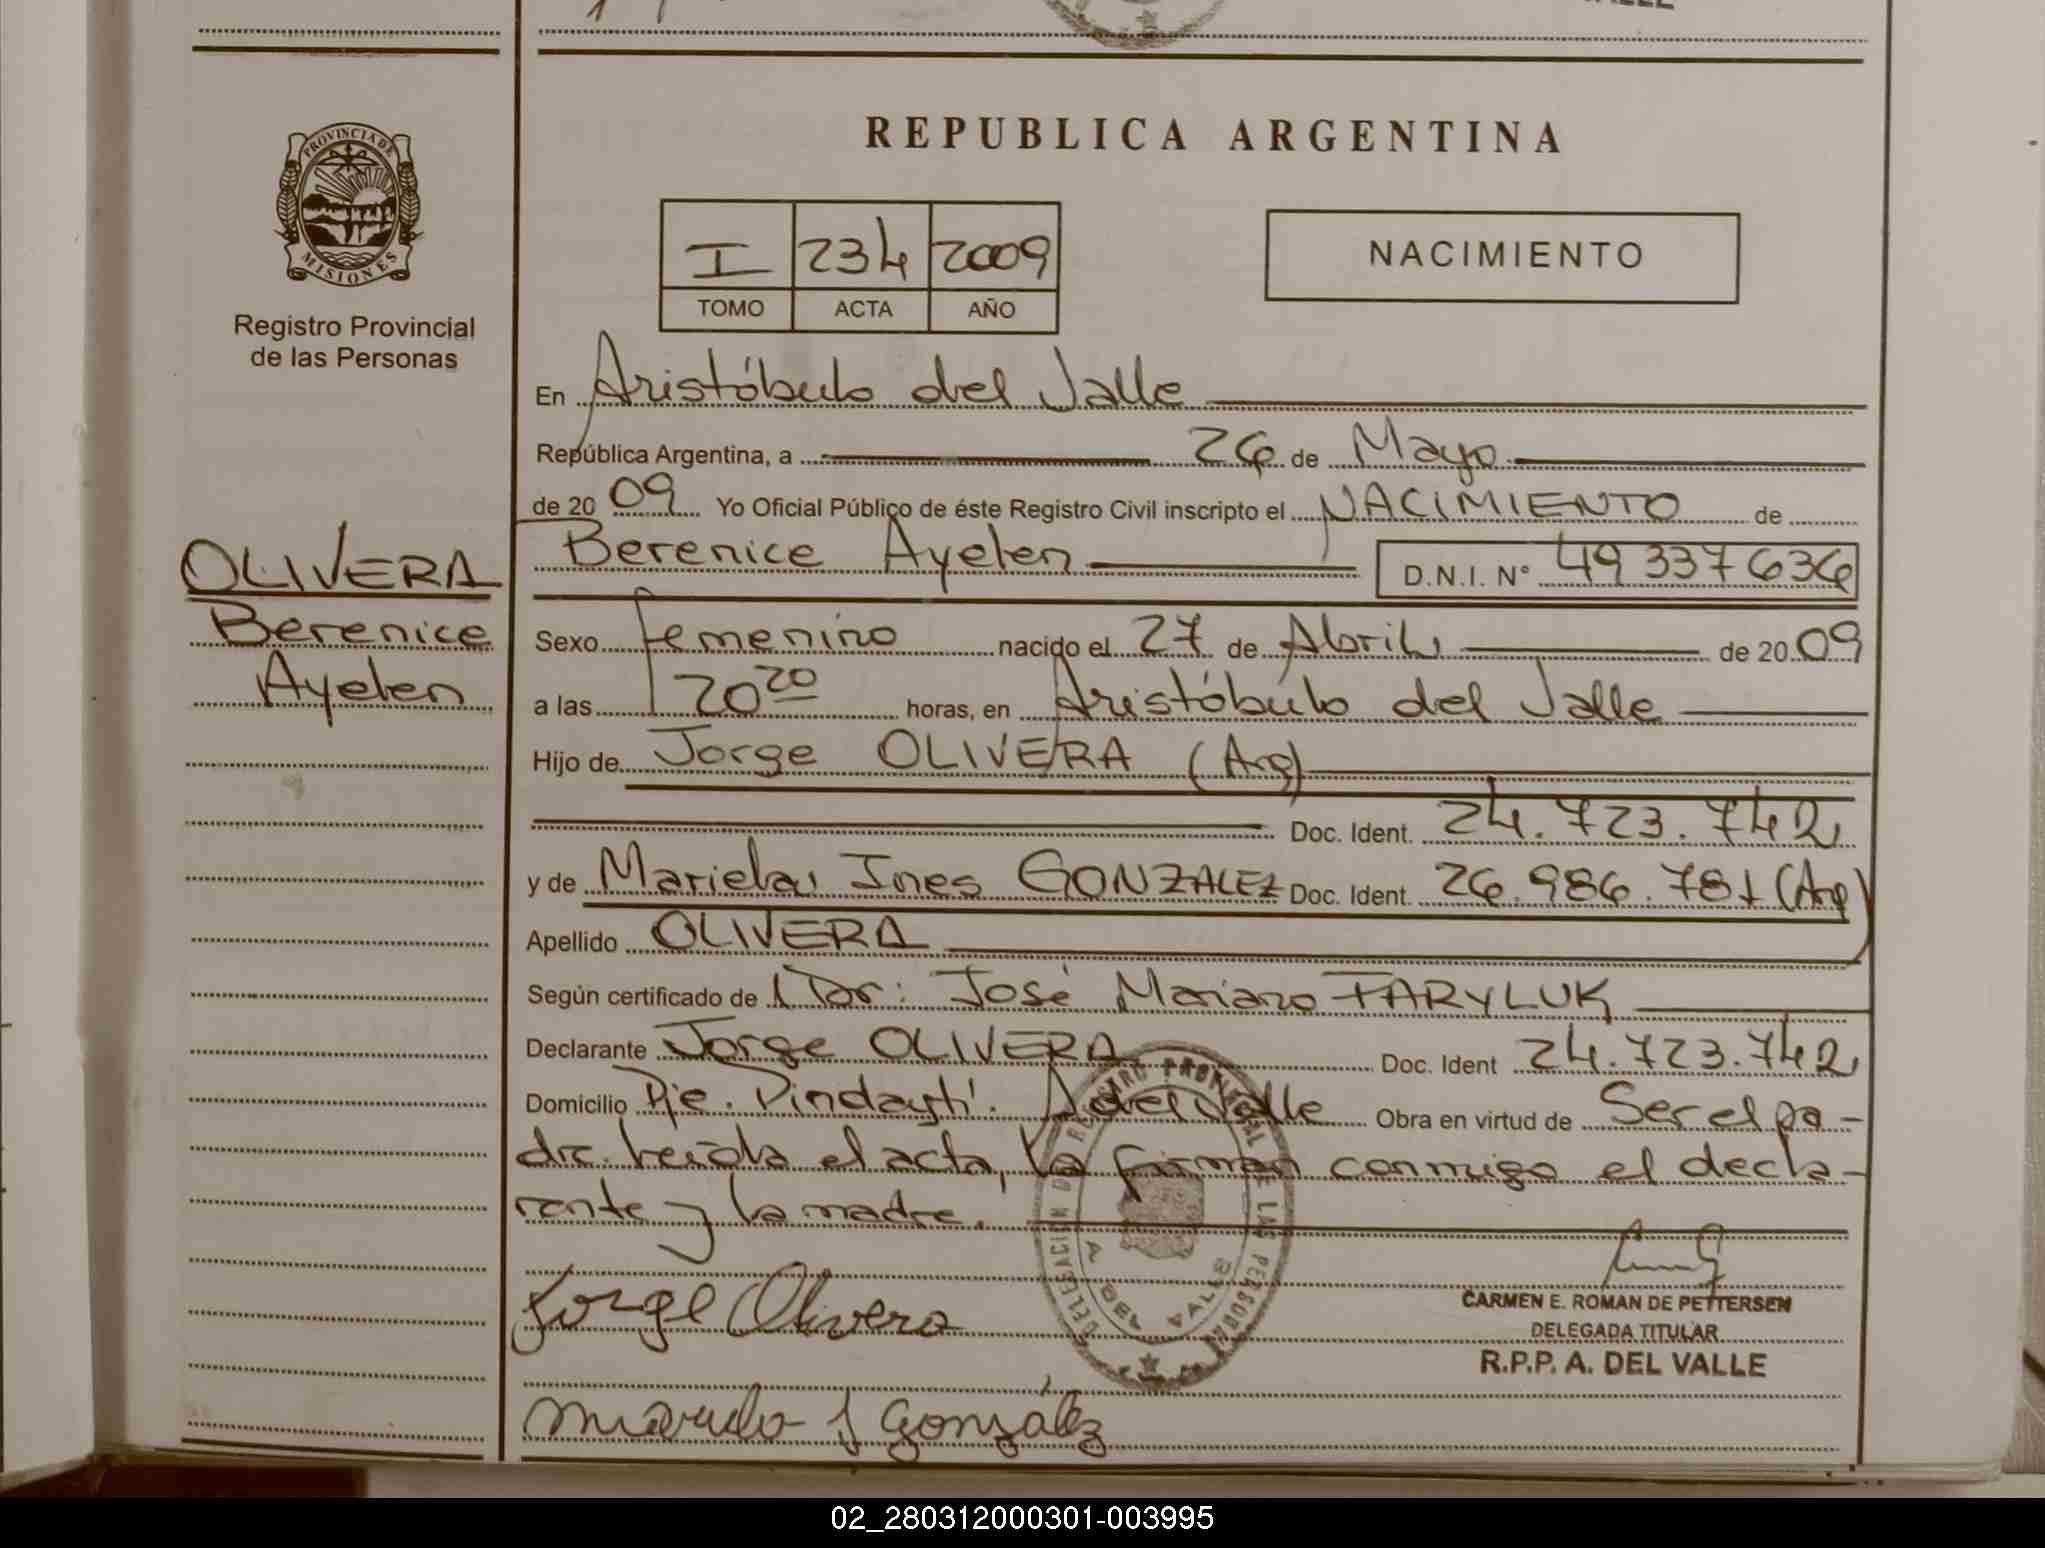 PROVINCIA DE
MISIONES
Registro Provincial
de las Personas
OLIVERA
Berenice
Ayelen
REPUBLICA ARGENTINA
I 234 2009
TOMO ACTA AÑO
NACIMIENTO
En Aristóbulo del Valle
República Argentina, a 26 de Mayo
de 2009 Yo Oficial Público de éste Registro Civil inscripto el NACIMIENTO de
Berenice Ayelen D.N.I. N° 49 337 636
Sexo femenino nacido el 27 de Abril de 2009
a las 20 20 horas, en Aristóbulo del Valle
Hijo de Jorge OLIVERA (Arg)
Doc. Ident. 24.723.742
y de Mariela Ines GONZALEZ Doc. Ident. 26.986.781 (Arg)
Apellido OLIVERA
Según certificado de Dr: José Mariano TARYLUK
Declarante Jorge OLIVERA Doc. Ident 24.723.742
Domicilio Pje. Pindaytí. A del Valle Obra en virtud de Ser el pa-
dre. leída el acta, la firman conmigo el decla-
rante y la madre.
DELEGACION DE REGISTRO PROVINCIAL DE LAS PERSONAS
A DEL VALLE
Jorge Olivera
CARMEN E. ROMAN DE PETTERSEN
DELEGADA TITULAR
R.P.P. A. DEL VALLE
Mariela I González
02_280312000301-003995